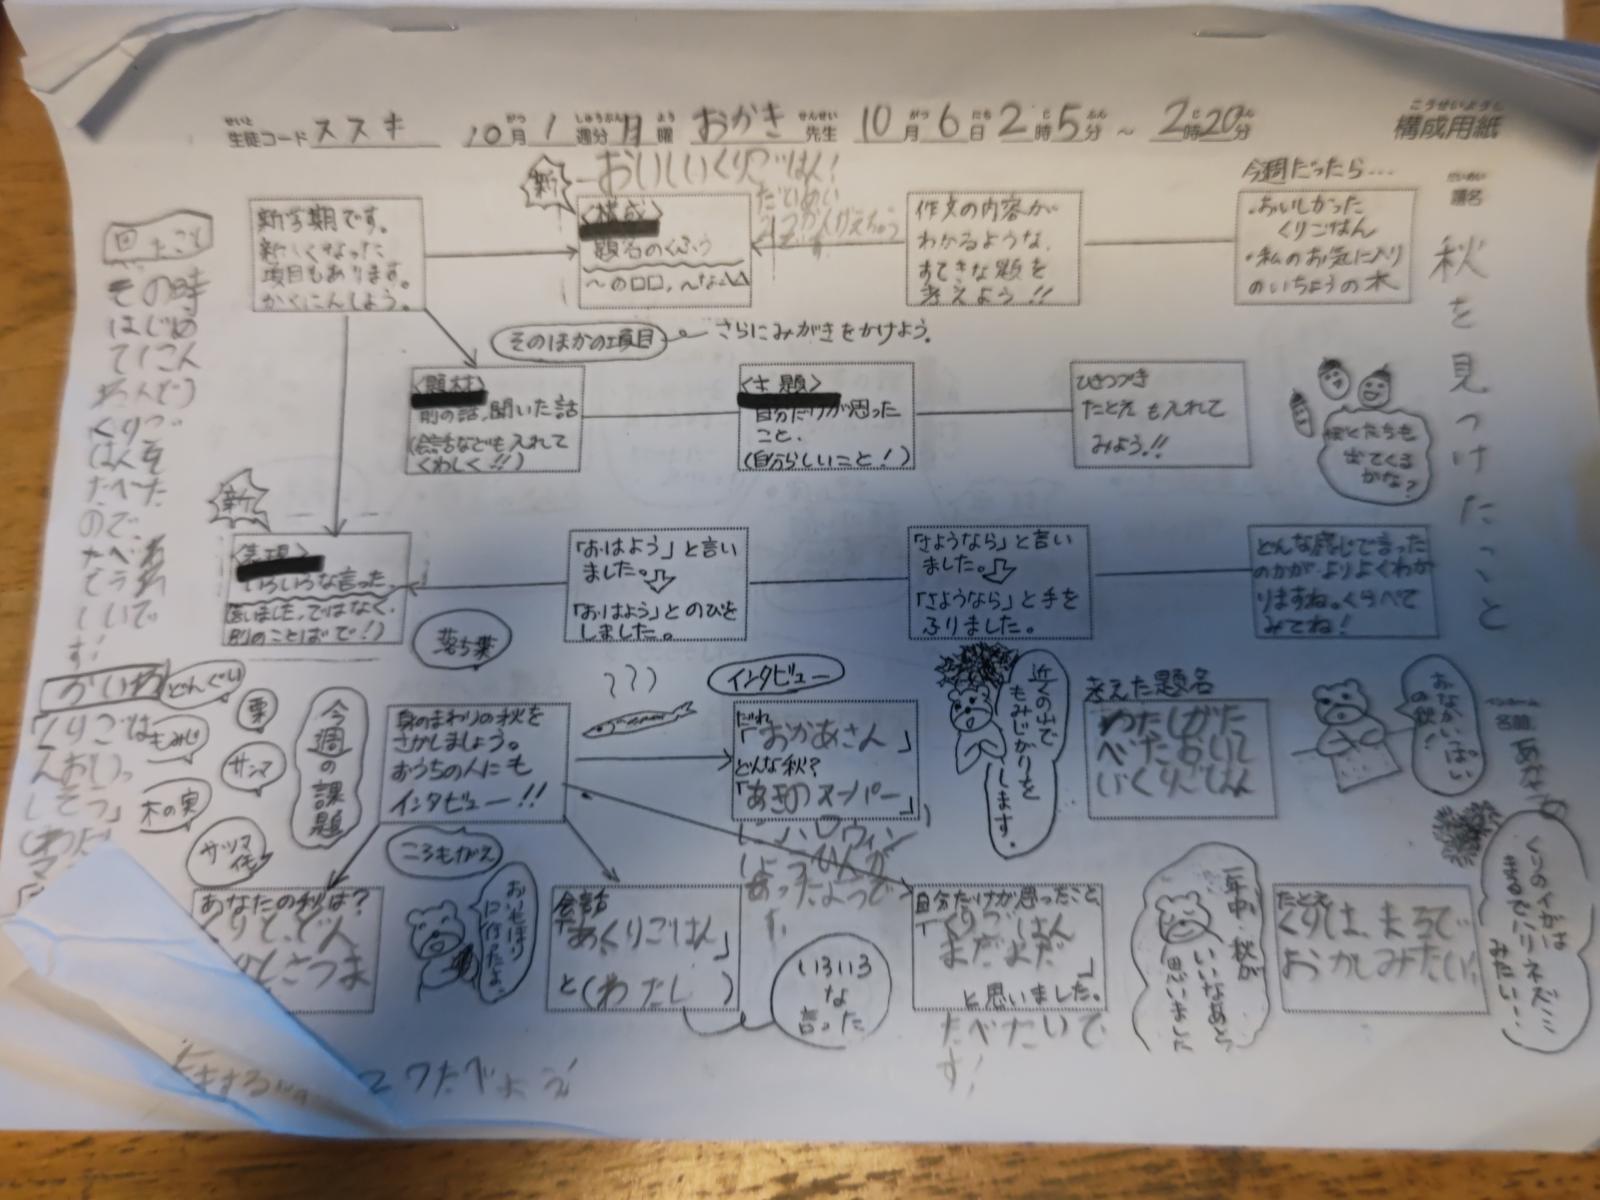 構成用紙
こうせいようし
生徒コード ススキ 10月1週分月曜 おかき先生 10月6日2時5分～2時20分
題名 秋を見つけたこと
名前 あな
今週だったら...
・おいしかった
くりごはん
・私のお気に入り
のいちょうの木
作文の内容が
わかるような、
すてきな題を
考えよう!!
おいしいくりごはん!
新
<構成>
題名のくふう
～の□□,～な△△
新学期です。
新しくなった
項目もあります。
かくにんしよう。
そのほかの項目
さらにみがきをかけよう。
<題材>
前の話、聞いた話
(会話なども入れて
くわしく!!)
<主題>
自分だけが思った
こと、
(自分らしいこと!)
ひきつづき
たとえも入れて
みよう!!
ぼくたちも
出てくる
かな?
新
<表現>
いろいろな言った、
思いました、ではなく、
別のことばで!)
「おはよう」と言い
ました。
「おはよう」とのびを
しました。
「さようなら」と言い
ました。
「さようなら」と手を
ふりました。
どんな感じで言った
のかが よりよくわか
りますね。くらべて
みてね!
落ち葉
どんぐり
栗
もみじ
サンマ
木の実
サツマ
イモ
今週の課題
身のまわりの秋を
さがしましょう。
おうちの人にも
インタビュー!!
インタビュー
だれ
「おかあさん」
どんな秋?
「あきのスーパー」
ハロウィン
近くの山で
もみじがりを
します。
考えた題名
わたしがた
べたおいし
いくりごはん
おなかいっぱい
の秋!
ころもがえ
あなたの秋は?
おいもほり
に行ったよ。
会話
「あくりごはん」
と(わたし)
いろいろ
な
言った
自分だけが思ったこと、
「くりごはん
まだよだ」
と思いました。
たべたいで
す!
一年中、秋が
いいなあと
思いました
たとえ
くりは、まるで
おかしみたい。
くりのイガは
まるでハリネズミ
みたい…
その時
はじめ
くりご
はんを
たべた
ので、
しいで
す!
かいわ